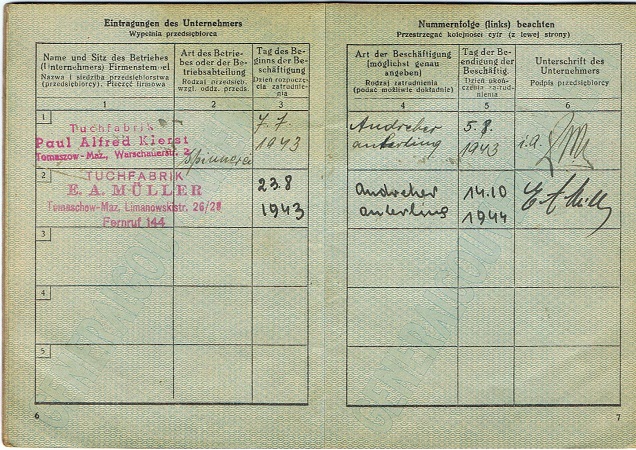 Eintragungen des Unternehmers
Wypełnia przedsiębiorca
Name und Sitz des Betriebes
(Unternehmers) Firmenstempel
Nazwa i siedziba przedsiębiorstwa
(przedsiębiorcy). Pieczęć firmowa
Art des Betrie-
bes oder der Be-
triebsabteilung
Rodzaj przedsięb.
wzgl. oddz. przeds.
Tag des Be-
ginns der Be-
schäftigung
Dzień rozpoczę-
cia zatrudnie-
nia
1
2
3
1
Tuchfabrik
Paul Alfred Kierst
Tomaszow-Maz., Warschauerstr. 2
Spinnerei
7 7
1943
2
TUCHFABRIK
E. A. MÜLLER
Tomaschow-Maz, Limanowskistr. 26/28
Fernruf 144
23.8
1943
3
4
5
6
Nummernfolge (links) beachten
Przestrzegać kolejności cyfr (z lewej strony)
Art der Beschäftigung
(möglichst genau
angeben)
Rodzaj zatrudnienia
(podać możliwie dokładnie)
Tag der Be-
endigung der
Beschäftig.
Dzień ukoń-
czenia zatrud-
nienia
Unterschrift des
Unternehmers
Podpis przedsiębiorcy
4
5
6
Andreher
anterling
5.8.
1943
i.a.
Andreher
anterling
14.10
1944
7
GENERALGOUV